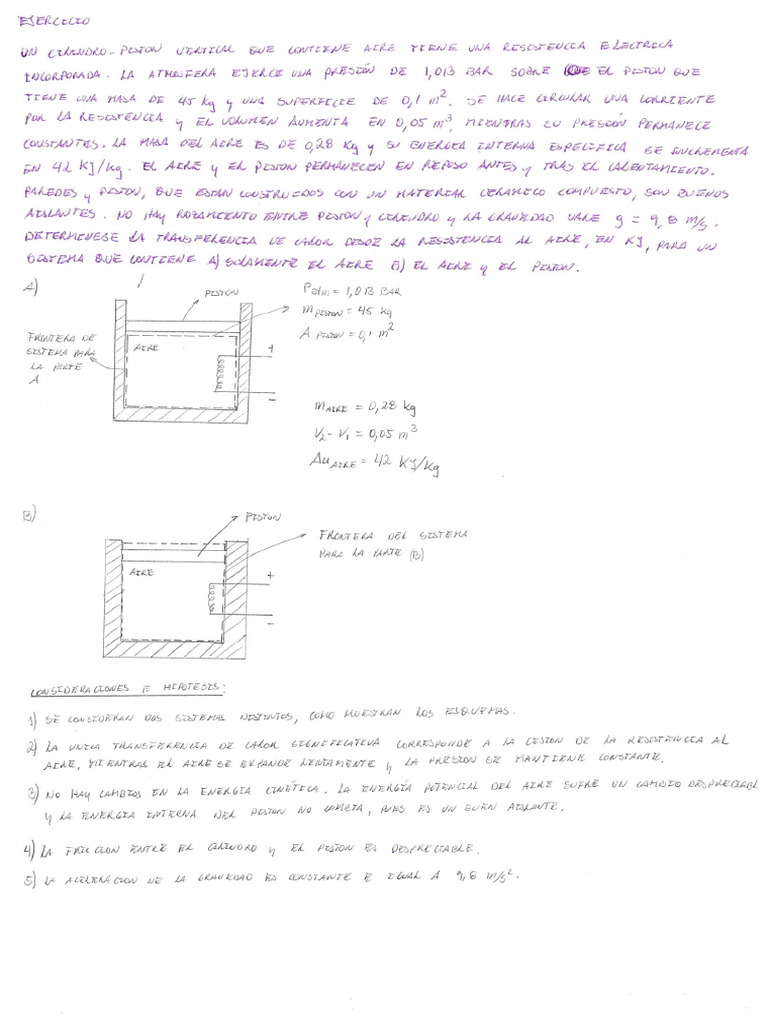 EJERCICIO
UN CILINDRO-PISTON VERTICAL QUE CONTIENE AIRE TIENE UNA RESISTENCIA ELECTRICA
INCORPORADA. LA ATMOSFERA EJERCE UNA PRESIÓN DE 1,013 BAR SOBRE EL PISTON QUE
TIENE UNA MASA DE 45 kg y UNA SUPERFICIE DE 0,1 m². SE HACE CIRCULAR UNA CORRIENTE
POR LA RESISTENCIA y EL VOLUMEN AUMENTA EN 0,05 m³, MIENTRAS SU PRESIÓN PERMANECE
CONSTANTES. LA MASA DEL AIRE ES DE 0,28 kg y SU ENERGIA INTERNA ESPECIFICA SE INCREMENTA
EN 42 KJ/kg. EL AIRE y EL PISTON PERMANECEN EN REPOSO ANTES y TRAS EL CALENTAMIENTO.
PAREDES y PISTON, QUE ESTAN CONSTRUIDOS CON UN MATERIAL CERAMICO COMPUESTO, SON BUENOS
AISLANTES. NO HAY ROZAMIENTO ENTRE PISTON y CILINDRO y LA GRAVEDAD VALE g = 9,8 m/s.
DETERMINESE LA TRANSFERENCIA DE CALOR DESDE LA RESISTENCIA AL AIRE, EN KJ, PARA UN
SISTEMA QUE CONTIENE A) SOLAMENTE EL AIRE B) EL AIRE y EL PISTON.
A)
PISTON
Patm = 1,013 BAR
m PISTON = 45 kg
A PISTON = 0,1 m²
FRONTERA DE
SISTEMA PARA
LA PARTE
A
AIRE
+
-
m AIRE = 0,28 kg
V₂ - V₁ = 0,05 m³
Δu AIRE = 42 KJ/Kg
B)
PISTON
FRONTERA DEL SISTEMA
PARA LA PARTE (B)
AIRE
+
-
CONSIDERACIONES E HIPOTESIS:
1) SE CONSIDERAN DOS SISTEMAS DISTINTOS, COMO MUESTRAN LOS ESQUEMAS.
2) LA UNICA TRANSFERENCIA DE CALOR SIGNIFICATIVA CORRESPONDE A LA CESION DE LA RESISTENCIA AL
AIRE, MIENTRAS EL AIRE SE EXPANDE LENTAMENTE y LA PRESION SE MANTIENE CONSTANTE.
3) NO HAY CAMBIOS EN LA ENERGIA CINÉTICA. LA ENERGÍA POTENCIAL DEL AIRE SUFRE UN CAMBIO DESPRECIABLE
y LA ENERGIA INTERNA DEL PISTON NO CAMBIA, PUES ES UN BUEN AISLANTE.
4) LA FRICCION ENTRE EL CILINDRO y EL PISTON ES DESPRECIABLE.
5) LA ACELERACION DE LA GRAVEDAD ES CONSTANTE E IGUAL A 9,8 m/s².